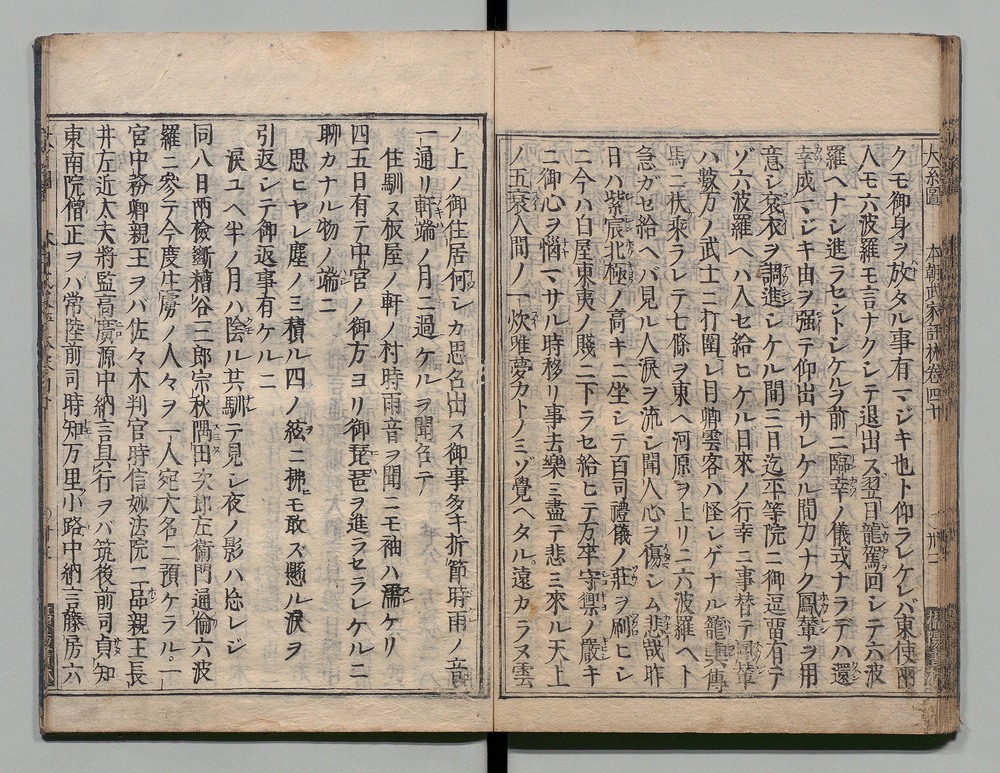 大系圖 本朝武家評林卷四十
クモ御身ヲ放タル事有マジキ也ト仰ラレケレバ東使兩
人モ六波羅モ言ナクシテ退出ス翌日龍駕回シテ六波
羅ヘナシ進ラセントシケルヲ前ニ臨幸ノ儀式ナラデハ還
幸成マジキ由ヲ强テ仰出サレケル間力ナク鳳輦ヲ用
意シ袞衣ヲ調進シケル間三日迄平等院ニ御逗畱有テ
ゾ六波羅ヘハ入セ給ヒケル日來ノ行幸ニ事替テ鳳輦
ハ數万ノ武士ニ打圍レ月卿雲客ハ怪シゲナル籠輿傳
馬ニ扶乘ラレテ七條ヲ東ヘ河原ヲ上リニ六波羅ヘト
急ガセ給ヘバ見ル人淚ヲ流シ聞人心ヲ傷シム悲哉昨
日ハ紫宸北極ノ高キニ坐シテ百司禮儀ノ莊ヲ刷ヒシ
ニ今ハ白屋東夷ノ賤ニ下ラセ給ヒテ万卒守禦ノ嚴キ
ニ御心ヲ惱マサル時移リ事去樂ミ盡テ悲ミ來ル天上
ノ五衰人間ノ一炊唯夢カトノミゾ覺ヘタル。遠カラヌ雲
ノ上ノ御住居何シカ思召出ス御事多キ折節時雨ノ音
一通リ軒端ノ月ニ過ケルヲ聞召テ
住馴ヌ板屋ノ軒ノ村時雨音ヲ聞ニモ袖ハ濡ケリ
四五日有テ中宮ノ御方ヨリ御琵琶ヲ進ラセラレケルニ
聊カナル物ノ端ニ
思ヒヤレ塵ノミ積ル四ノ絃ニ拂モ敢ズ懸ル淚ヲ
引返シテ御返事有ケルニ
淚ユヘ半ノ月ハ陰ル共馴テ見シ夜ノ影ハ忘レジ
同八日兩檢斷糟谷三郎宗秋隅田次郎左衞門通倫六波
羅ニ參テ今度生虜ノ人々ヲ一人宛大名ニ預ケラル。一
宮中務卿親王ヲバ佐々木判官時信妙法院二品親王長
井左近太夫將監高廣源中納言具行ヲバ筑後前司貞知
東南院僧正ヲバ常陸前司時知万里小路中納言藤房六